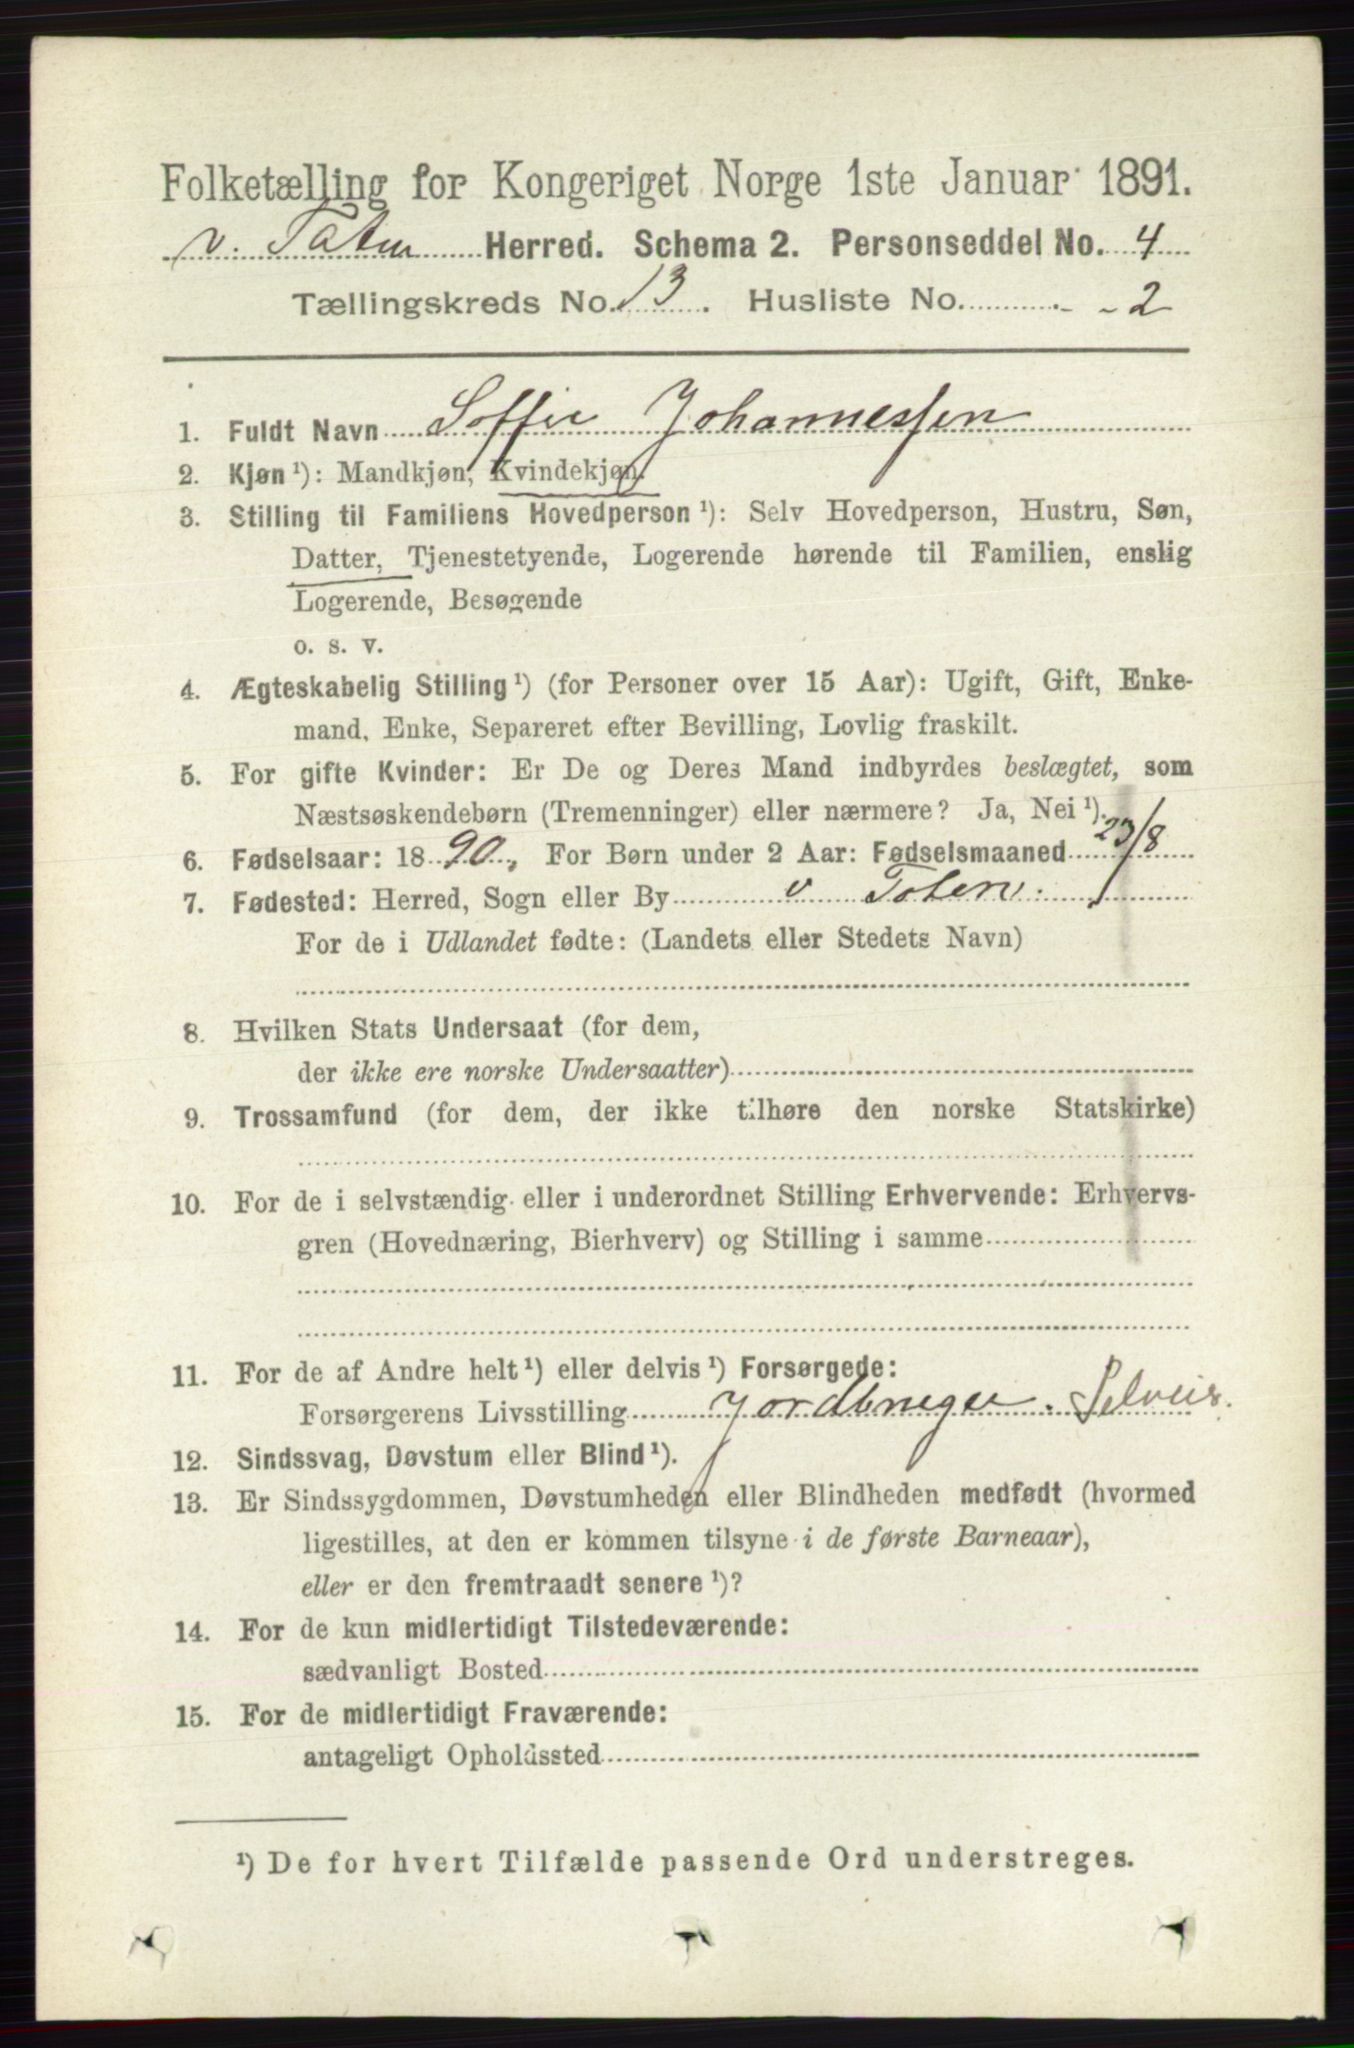 Folketælling for Kongeriget Norge 1ste Januar 1891.
v. Toten Herred. Schema 2. Personseddel No. 4
Tællingskreds No. 13. Husliste No. 2
1. Fuldt Navn Soffie Johannessen
2. Kjøn¹): Mandkjøn, Kvindekjøn.
3. Stilling til Familiens Hovedperson¹): Selv Hovedperson, Hustru, Søn,
Datter, Tjenestetyende, Logerende hørende til Familien, enslig
Logerende, Besøgende
o. s. v.
4. Ægteskabelig Stilling¹) (for Personer over 15 Aar): Ugift, Gift, Enke-
mand, Enke, Separeret efter Bevilling, Lovlig fraskilt.
5. For gifte Kvinder: Er De og Deres Mand indbyrdes beslægtet, som
Næstsøskendebørn (Tremenninger) eller nærmere? Ja, Nei¹).
6. Fødselsaar: 1890, For Børn under 2 Aar: Fødselsmaaned 23/8
7. Fødested: Herred, Sogn eller By v Toten.
For de i Udlandet fødte: (Landets eller Stedets Navn)
8. Hvilken Stats Undersaat (for dem,
der ikke ere norske Undersaatter)
9. Trossamfund (for dem, der ikke tilhøre den norske Statskirke)
10. For de i selvstændig eller i underordnet Stilling Erhvervende: Erhvervs-
gren (Hovednæring, Bierhverv) og Stilling i samme
11. For de af Andre helt¹) eller delvis¹) Forsørgede:
Forsørgerens Livsstilling Jordbruger. Selveier.
12. Sindssvag, Døvstum eller Blind¹).
13. Er Sindssygdommen, Døvstumheden eller Blindheden medfødt (hvormed
ligestilles, at den er kommen tilsyne i de første Barneaar),
eller er den fremtraadt senere¹)?
14. For de kun midlertidigt Tilstedeværende:
sædvanligt Bosted
15. For de midlertidigt Fraværende:
antageligt Opholdssted
¹) De for hvert Tilfælde passende Ord understreges.